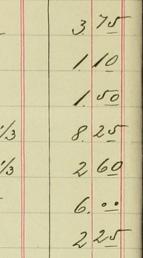 3 75
1. 10
1. 50
1/3 8. 25
1/3 2 60
6. ..
2 25